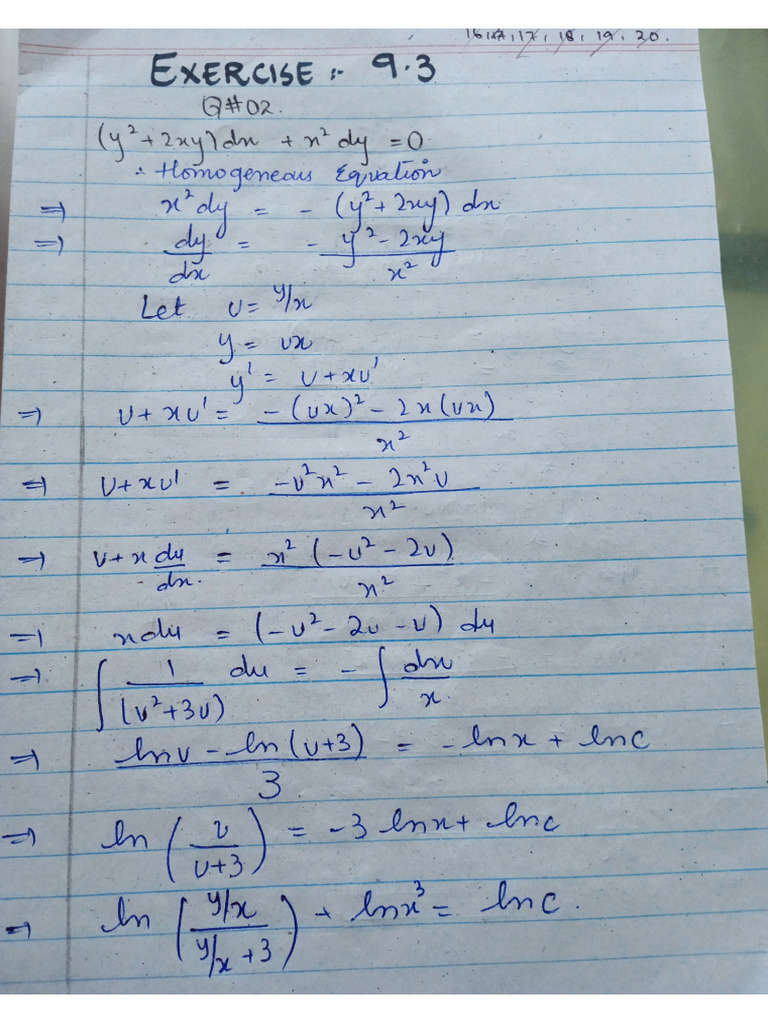 16, 17, 18, 19, 20.
EXERCISE :- 9.3
Q#02.
(y² + 2xy)dx + x² dy = 0
∴ Homogeneous Equation
⇒ x² dy = - (y² + 2xy) dx
⇒ dy/dx = - y² - 2xy / x²
Let v = y/x
y = vx
y' = v + xv'
⇒ v + xv' = -(vx)² - 2x(vx) / x²
⇒ v + xv' = -v²x² - 2x²v / x²
⇒ v + x dv/dx = x² (-v² - 2v) / x²
⇒ xdv = (-v² - 2v - v) dv
⇒ ∫ 1/(v² + 3v) dv = - ∫ dx/x
⇒ lnv - ln(v+3) / 3 = -lnx + lnc
⇒ ln (v/v+3) = -3 lnx + lnc
⇒ ln (y/x / y/x + 3) + lnx³ = lnc.